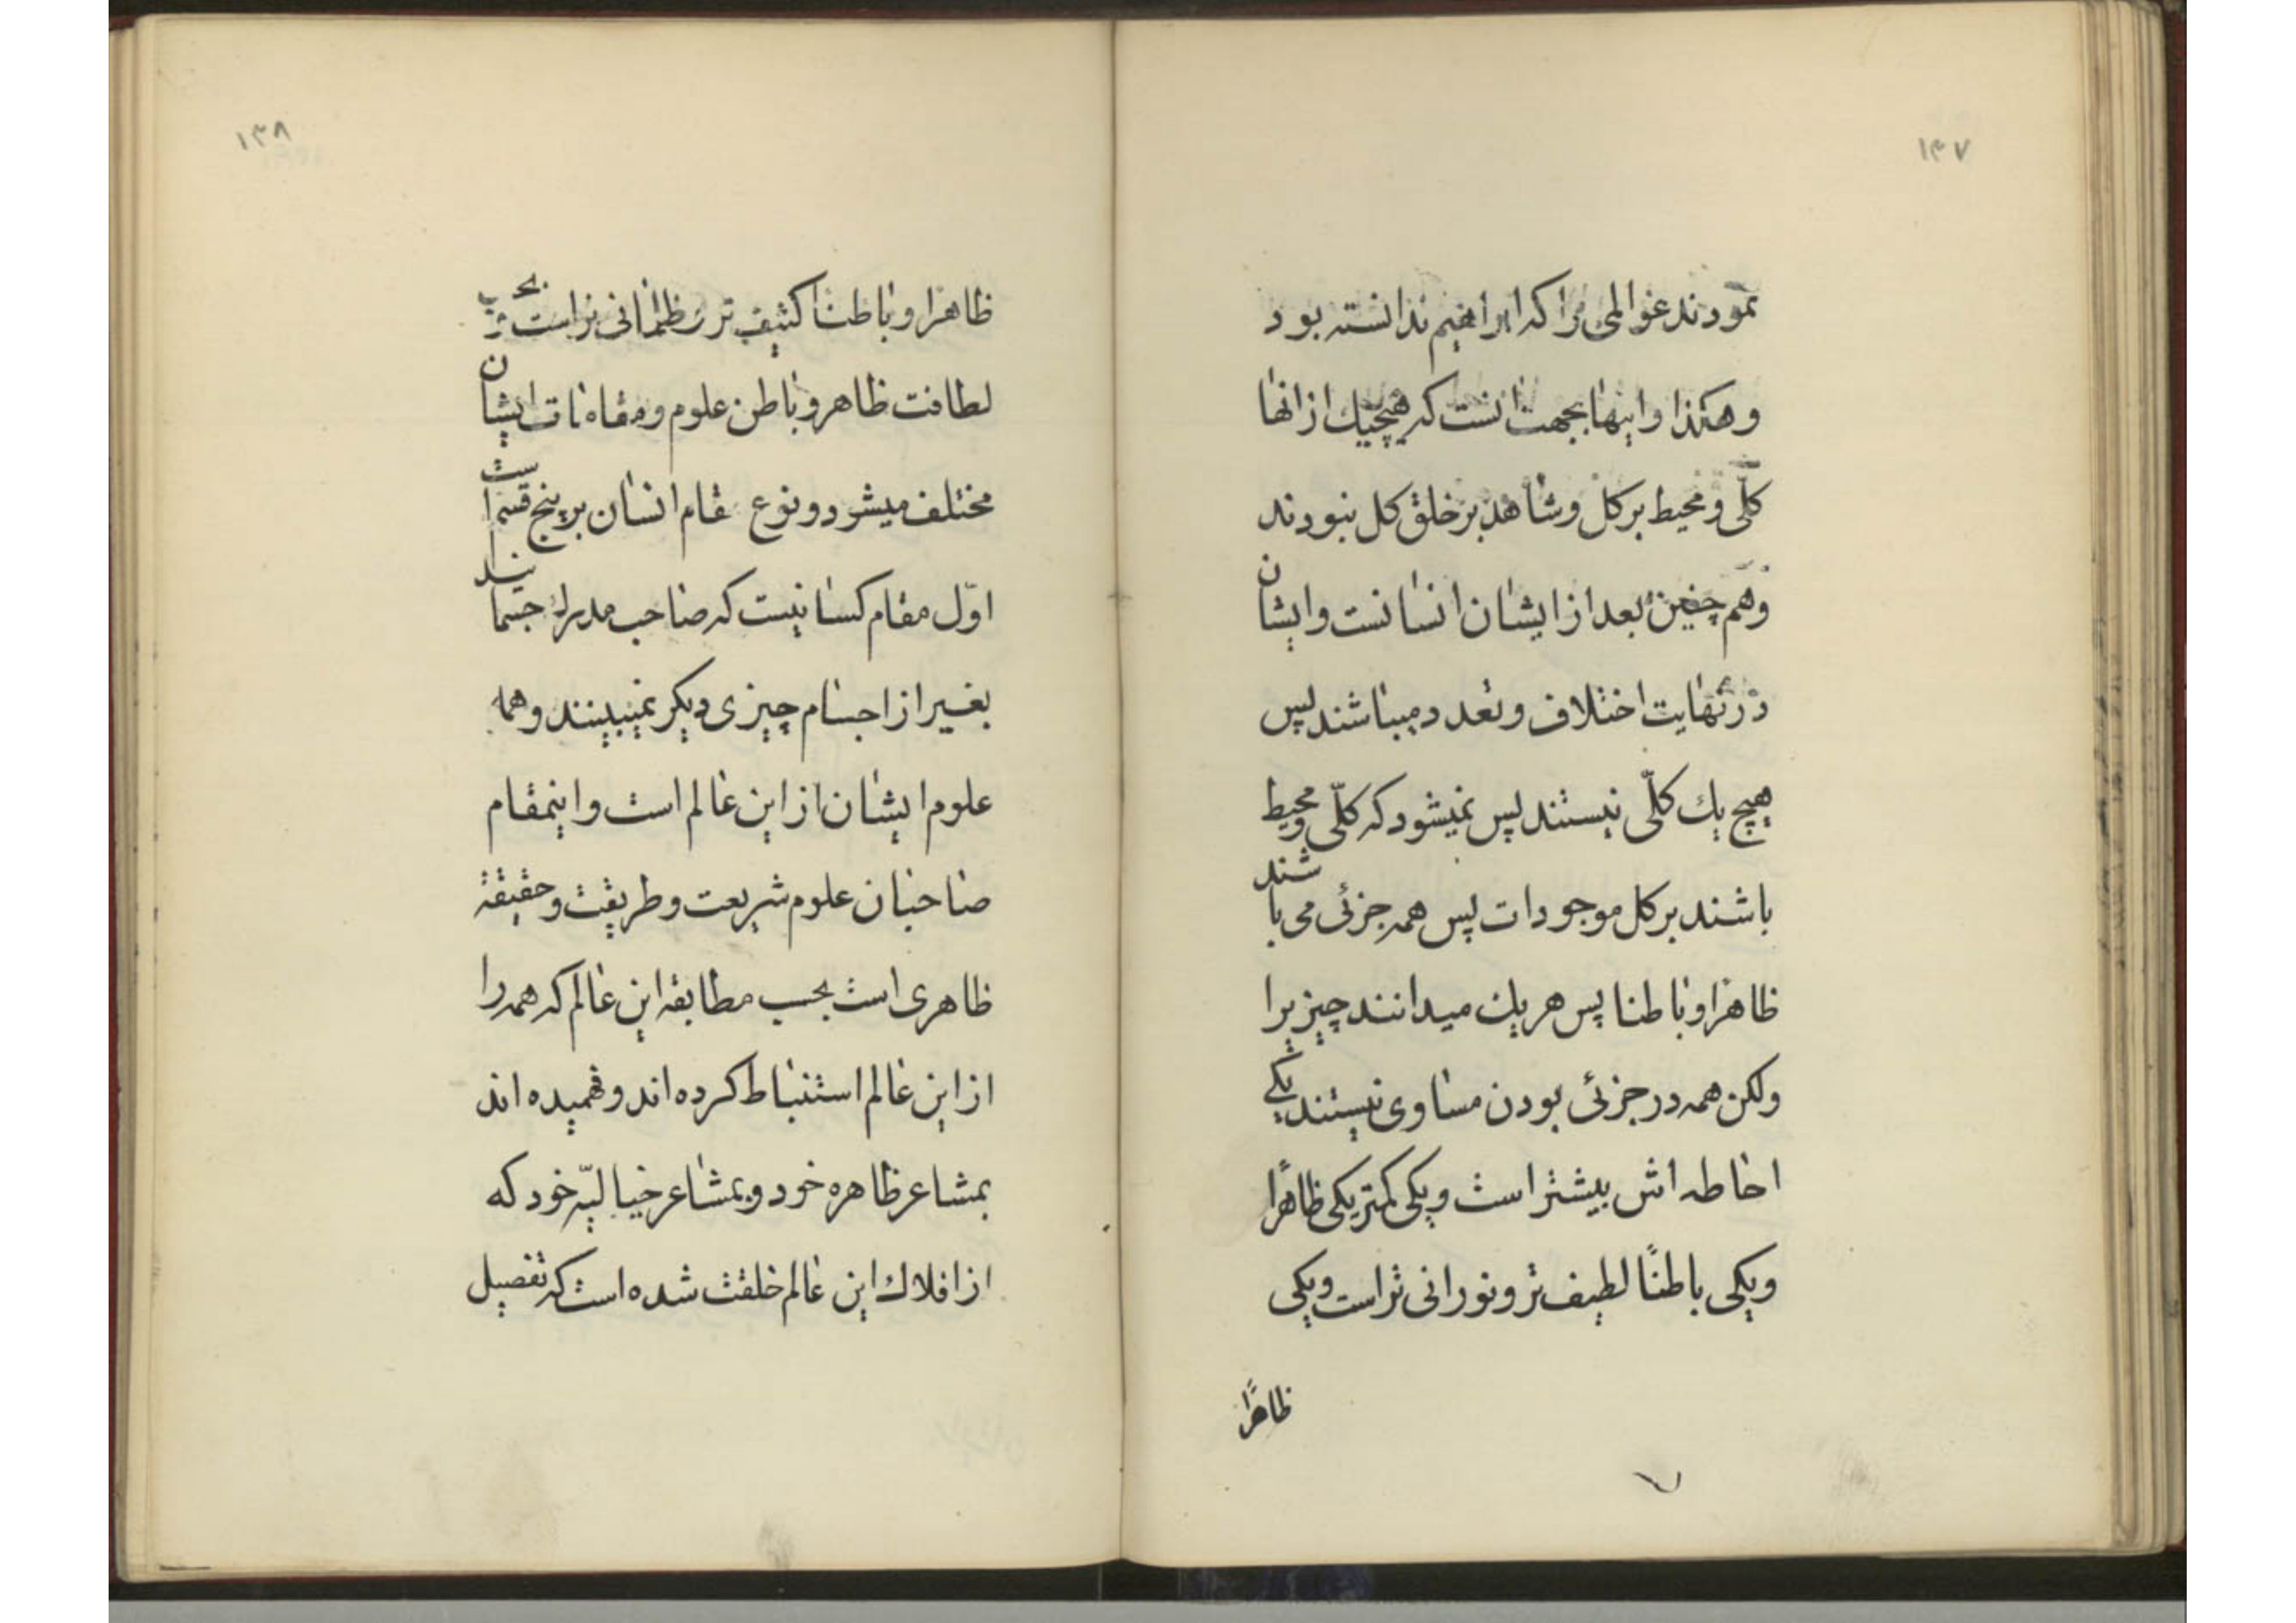 ۱۳۷
نمودند عوالمی را که ابراهیم ندانسته بود
و هکذا و اینها بجهت انست که هیچیك از انها
کلّی و محیط بر کل و شاهد بر خلق کل نبودند
و هم چنین بعد از ایشان انسانست و ایشان
در نهایت اختلاف و تعدد میباشند پس
هیچ یك کلّی نیستند پس نمیشود که کلّی و محیط
باشند بر کل موجودات پس همه جزئی می باشند
ظاهرا و باطنا پس هر یك میدانند چیزیرا
ولکن همه در جزئی بودن مساوی نیستند یکی
احاطه اش بیشتر است و یکی کمتر یکی ظاهرًا
و یکی باطنًا لطیف تر و نورانی تر است و یکی
ظاهرًا
۱۳۸
ظاهرا و باطنا کثیف تر ظلمانی تر است بحسب
لطافت ظاهر و باطن علوم و مقامات ایشان
مختلف میشود و نوع مقام انسان بر پنج قسم است
اوّل مقام کسانیست که صاحب مدرك جسمانیند
بغیر از اجسام چیزی دیکر نمیبینند و همه
علوم ایشان از این عالم است و اینمقام
صاحبان علوم شریعت و طریقت و حقیقة
ظاهری است بحسب مطابقه این عالم که همه را
از این عالم استنباط کرده اند و فهمیده اند
بمشاعر ظاهره خود و بمشاعر خیالیّه خود که
از افلاك این عالم خلقت شده است که تفصیل